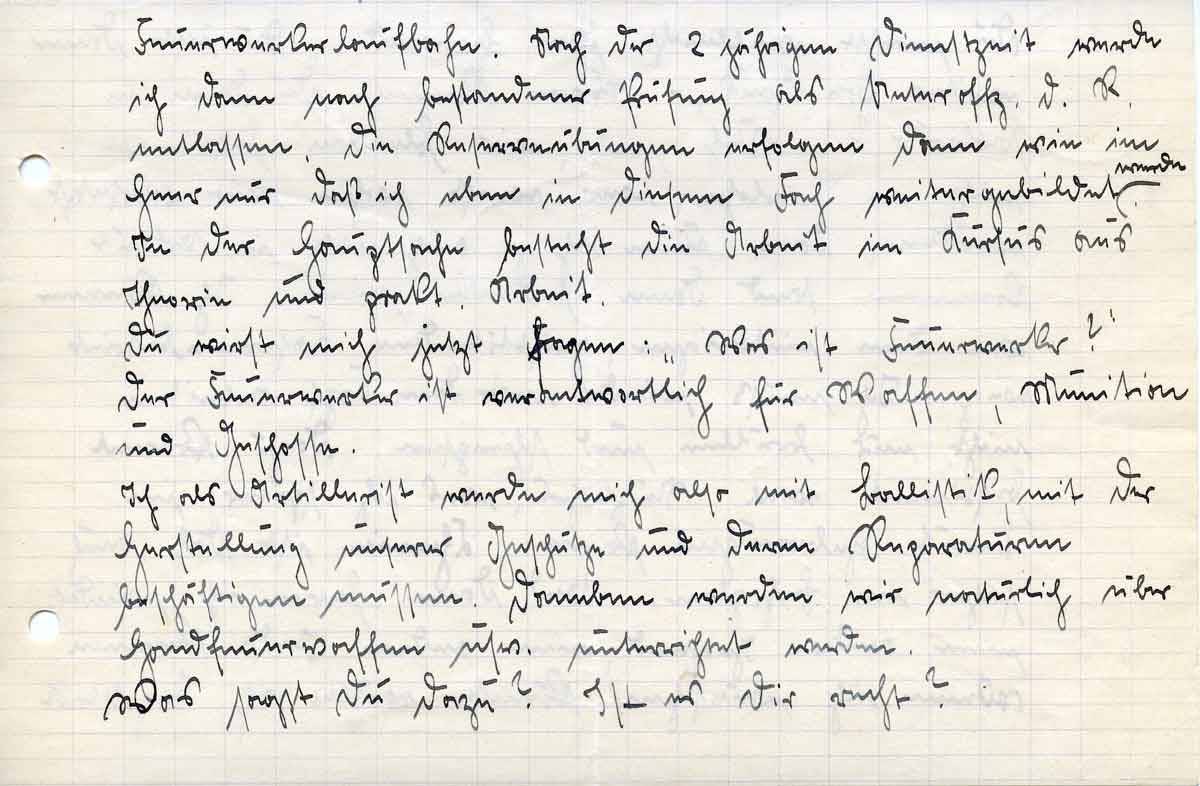 Feuerwerkerlaufbahn. Nach der 2 jährigen Dienstzeit werde
ich dann nach bestandener Prüfung als Unteroffz. d. R.
entlassen. Die Reserveübungen erfolgen dann wie im
Heer nur daß ich eben in diesem Fach weitergebildet werde.
In der Hauptsache besteht die Arbeit im Kursus aus
Theorie und prakt. Arbeit.
Du wirst mich jetzt fragen: „Was ist Feuerwerker?"
Der Feuerwerker ist verantwortlich für Waffen, Munition
und Geschosse.
Ich als Artillerist werde mich also mit Ballistik, mit der
Herstellung unserer Geschütze und deren Reparaturen
beschäftigen müssen. Daneben werden wir natürlich über
Handfeuerwaffen usw. unterrichtet werden.
Was sagst Du dazu? Ist es Dir recht?